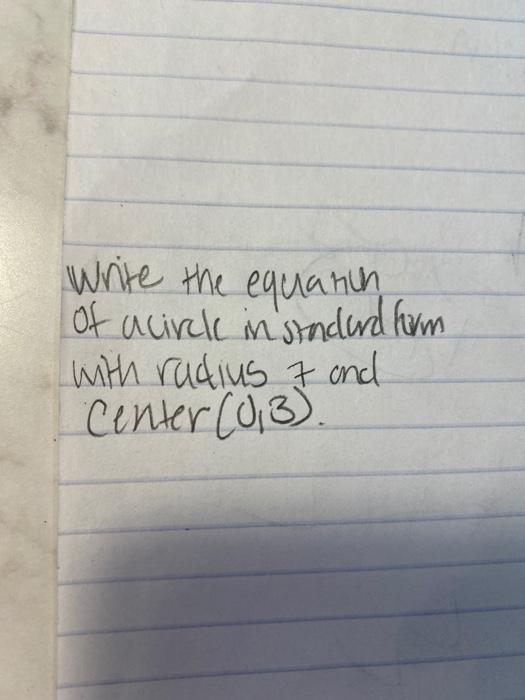 Write the equation
of a circle in standard form
with radius 7 and
center (0,3).